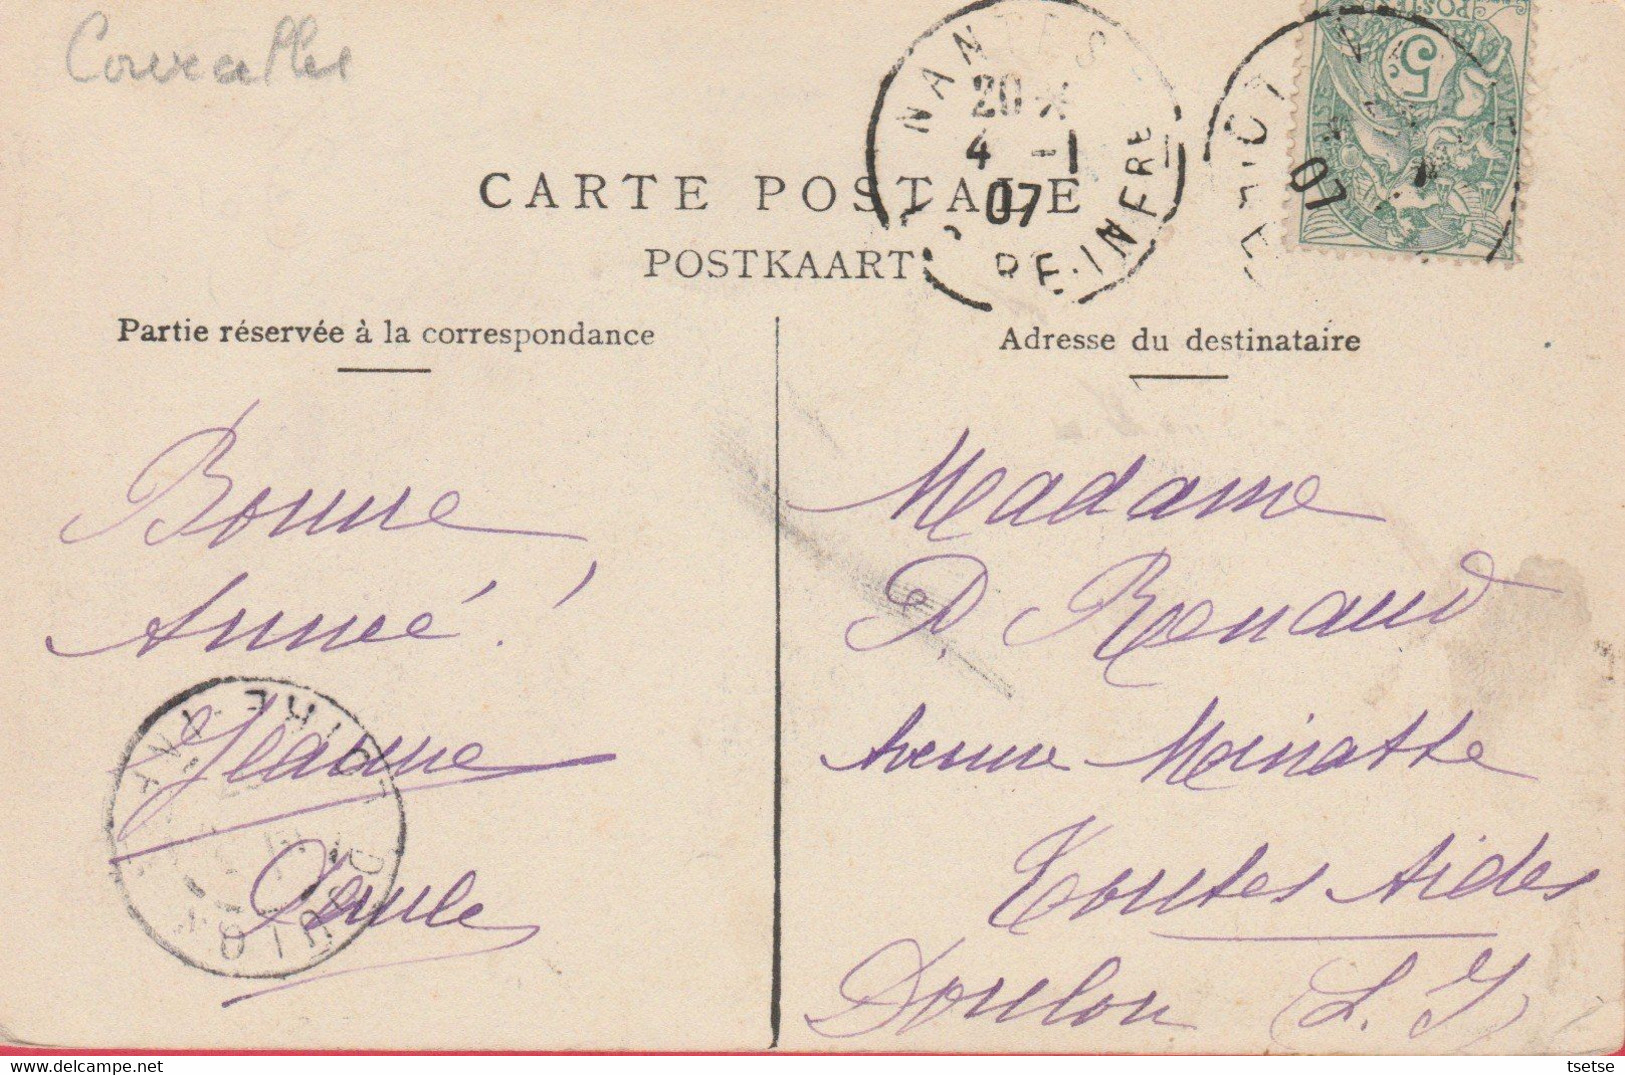 Courcelles
NANTES
20
4 -1
07
RE-INFRE
07
5c
POSTES
CARTE POSTALE
POSTKAART
Partie réservée à la correspondance
Adresse du destinataire
Bonne
Année!
Jeanne
Madame
P. Renaud
Avenue
Toutes Aides
Doulon (L. I)
LOIRE
DOULON
© delcampe.net
tsetse